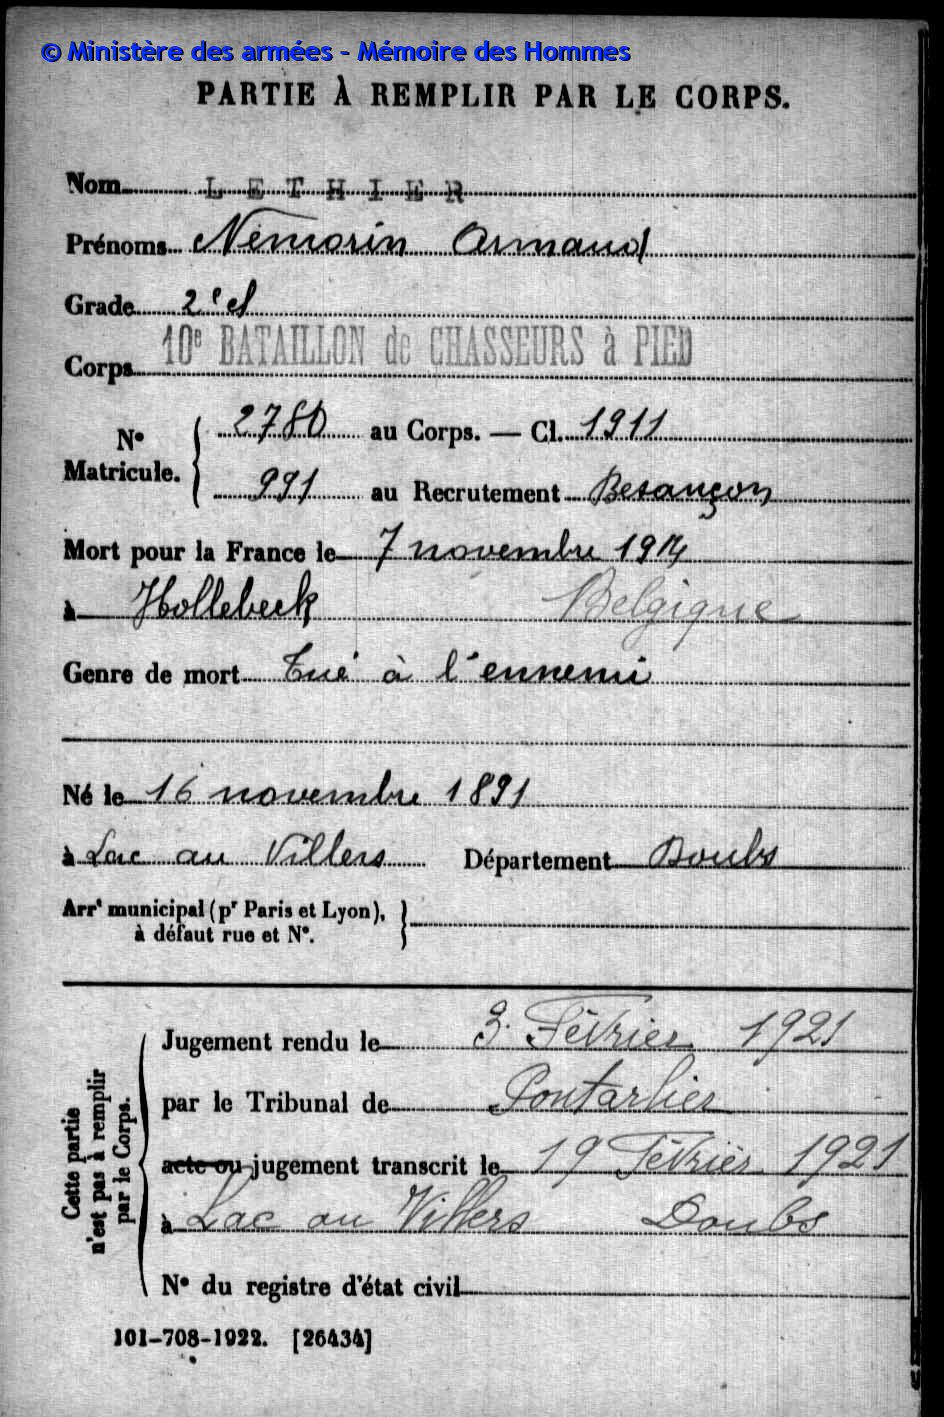 © Ministère des armées - Mémoire des Hommes
PARTIE À REMPLIR PAR LE CORPS.
Nom LETHIER
Prénoms Némorin Armand
Grade 2e cl
10e BATAILLON de CHASSEURS à PIED
Corps
N° Matricule. { 2780 au Corps. — Cl. 1911
991 au Recrutement Besançon
Mort pour la France le 7 novembre 1914
à Hollebeck Belgique
Genre de mort Tué à l'ennemi
Né le 16 novembre 1891
à Lac au Villers Département Doubs
Arrt municipal (pr Paris et Lyon), }
à défaut rue et N°.
Cette partie n'est pas à remplir par le Corps.
Jugement rendu le 3 Février 1921
par le Tribunal de Pontarlier
acte ou jugement transcrit le 19 Février 1921
à Lac au Villers Doubs
N° du registre d'état civil
101-708-1922. [26434]